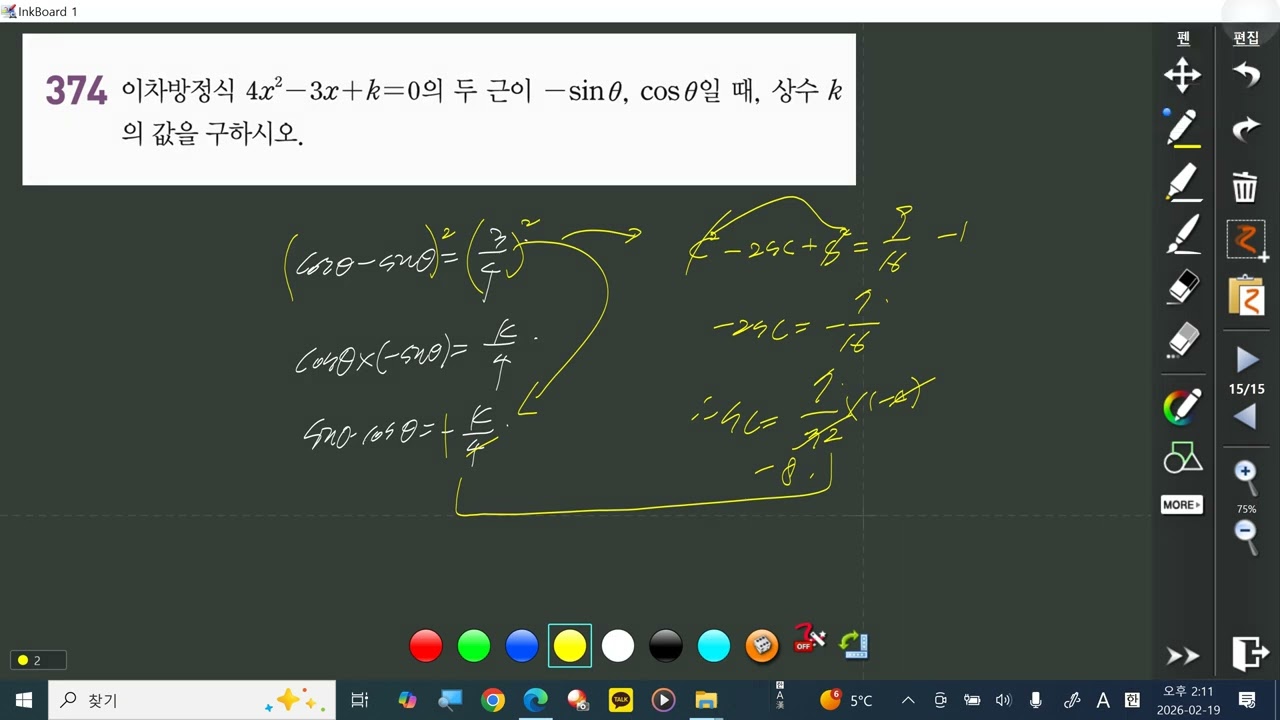 InkBoard 1
374 이차방정식 4x²-3x+k=0의 두 근이 -sinθ, cosθ일 때, 상수 k
의 값을 구하시오.
(cosθ-sinθ)²=(3/4)²
cosθ×(-sinθ)=k/4
sinθ·cosθ=-k/4
c²-2sc+s²=9/16 -1
-2sc=-7/16
∴sc=7/32×(-4)
-8
펜
편집
15/15
75%
MORE
OFF
2
찾기
TALK
6
5°C
A
한
오후 2:11
2026-02-19